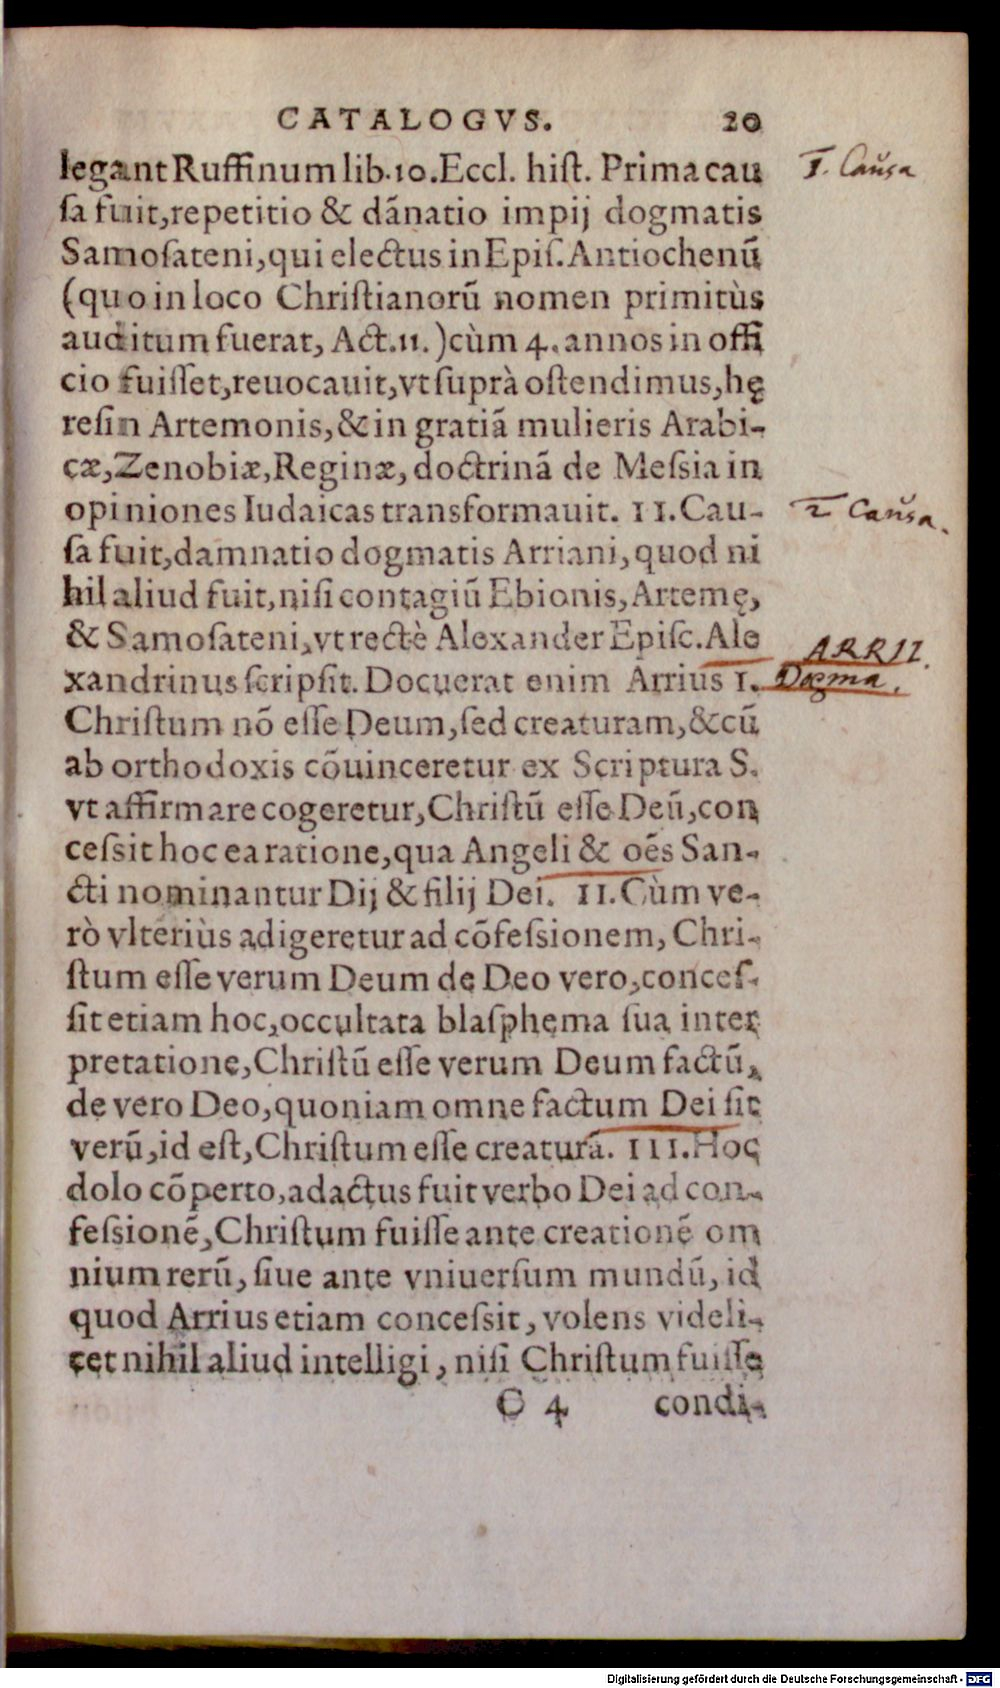 CATALOGVS. 20
legant Ruffinum lib. 10. Eccl. hiſt. Prima cau
ſa fuit, repetitio & dãnatio impij dogmatis
Samoſateni, qui electus in Epiſ. Antiochenũ
(quo in loco Chriſtianorũ nomen primitùs
auditum fuerat, Act. 11.) cùm 4. annos in offi
cio fuiſſet, reuocauit, vt ſuprà oſtendimus, hę
reſin Artemonis, & in gratiã mulieris Arabi-
cæ, Zenobiæ, Reginæ, doctrinã de Meſsia in
opiniones Iudaicas transformauit. II. Cau-
ſa fuit, damnatio dogmatis Arriani, quod ni
hil aliud fuit, niſi contagiũ Ebionis, Artemę,
& Samoſateni, vt rectè Alexander Epiſc. Ale
xandrinus ſcripſit. Docuerat enim Arrius I.
Chriſtum nõ eſſe Deum, ſed creaturam, & cũ
ab orthodoxis cõuinceretur ex Scriptura S.
vt affirmare cogeretur, Chriſtũ eſſe Deũ, con
ceſsit hoc ea ratione, qua Angeli & oẽs San-
cti nominantur Dij & filij Dei. II. Cùm ve-
rò vlteriùs adigeretur ad cõfeſsionem, Chri-
ſtum eſſe verum Deum de Deo vero, conceſ-
ſit etiam hoc, occultata blaſphema ſua inter
pretatione, Chriſtũ eſſe verum Deum factũ,
de vero Deo, quoniam omne factum Dei ſit
verũ, id eſt, Chriſtum eſſe creaturã. III. Hoc
dolo cõperto, adactus fuit verbo Dei ad con-
feſsionẽ, Chriſtum fuiſſe ante creationẽ om
nium rerũ, ſiue ante vniuerſum mundũ, id
quod Arrius etiam conceſsit, volens videli-
cet nihil aliud intelligi, niſi Chriſtum fuiſſe
C 4 condi-
1. Cauſa
2 Cauſa.
ARRII.
Dogma.
Digitalisierung gefördert durch die Deutsche Forschungsgemeinschaft - DFG